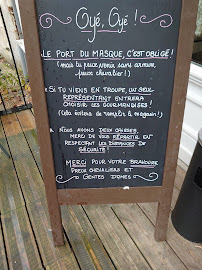 Oyé, Oyé !
LE PORT DU MASQUE, C'EST OBLIGÉ !
(mais tu peux venir sans armure,
preux chevalier !)
SI TU VIENS EN TROUPE, UN SEUL
REPRÉSENTANT ENTRERA
CHOISIR LES GOURMANDISES !
(Cela évitera de remplir le magasin !)
NOUS AVONS DEUX CAISSES,
MERCI DE VOUS RÉPARTIR EN
RESPECTANT LES DISTANCES DE
SÉCURITÉ !
MERCI POUR VOTRE BRAVOURE
PREUX CHEVALIERS ET
GENTES DAMES